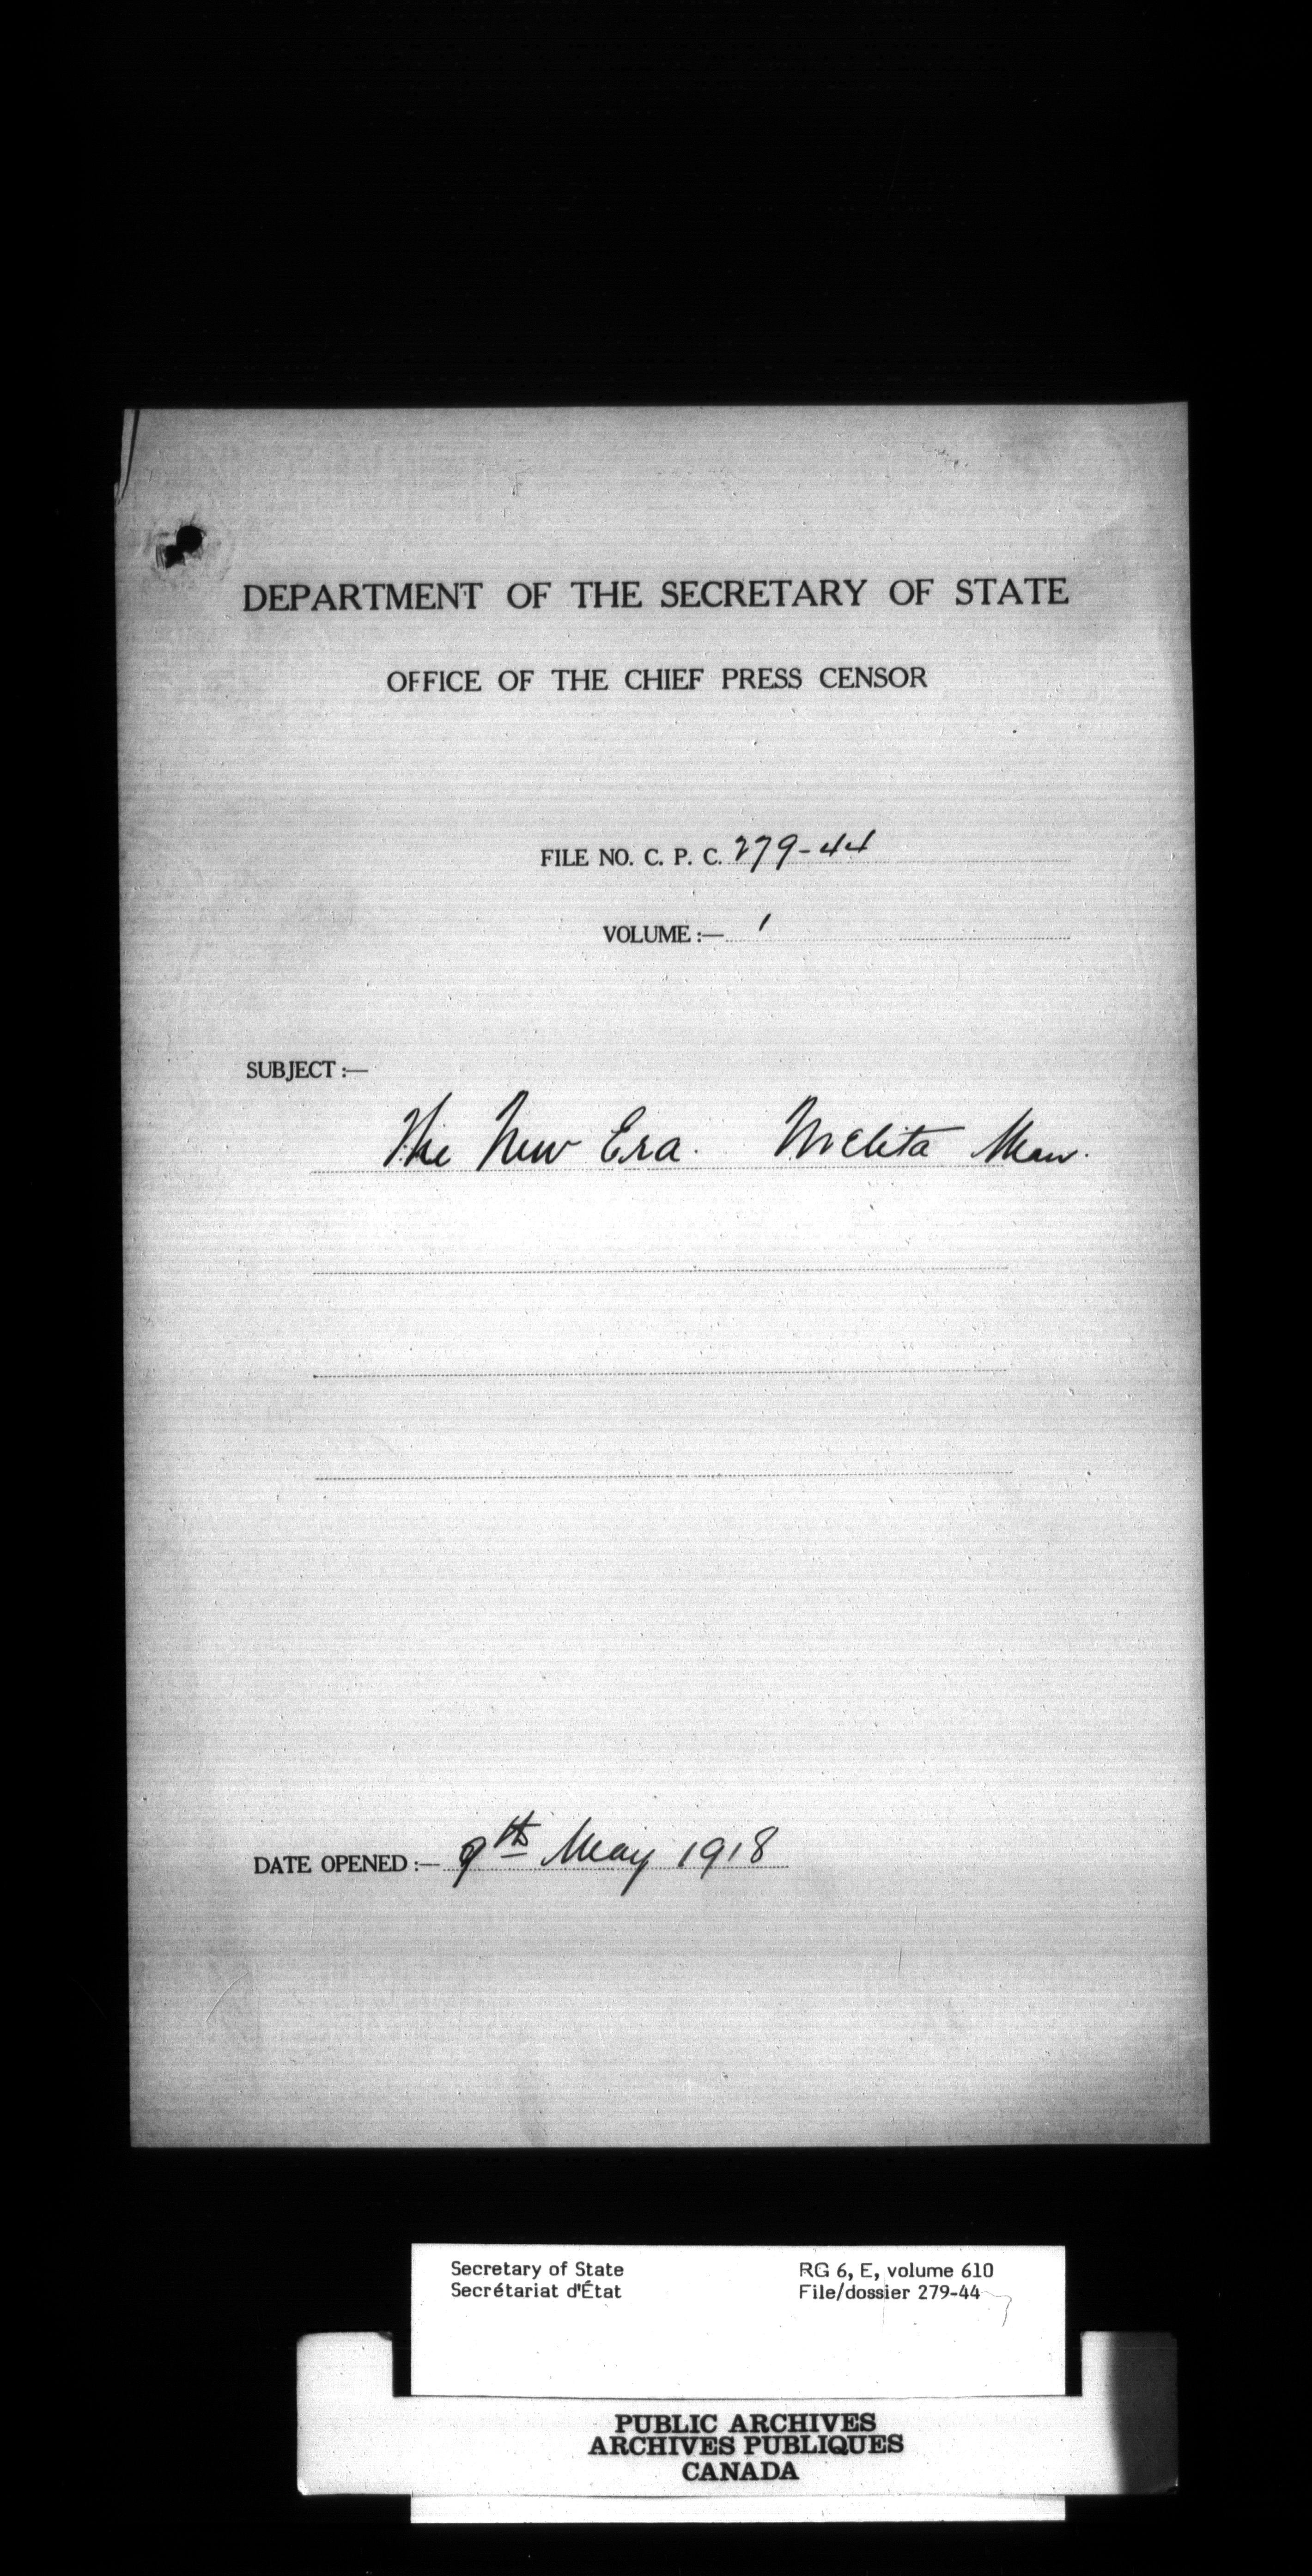 DEPARTMENT OF THE SECRETARY OF STATE
OFFICE OF THE CHIEF PRESS CENSOR
FILE NO. C. P. C. 279-44
VOLUME :— 1
SUBJECT :—
The New Era. Melita Man.
DATE OPENED :— 9th May 1918
Secretary of State RG 6, E, volume 610
Secrétariat d'État File/dossier 279-44
PUBLIC ARCHIVES
ARCHIVES PUBLIQUES
CANADA